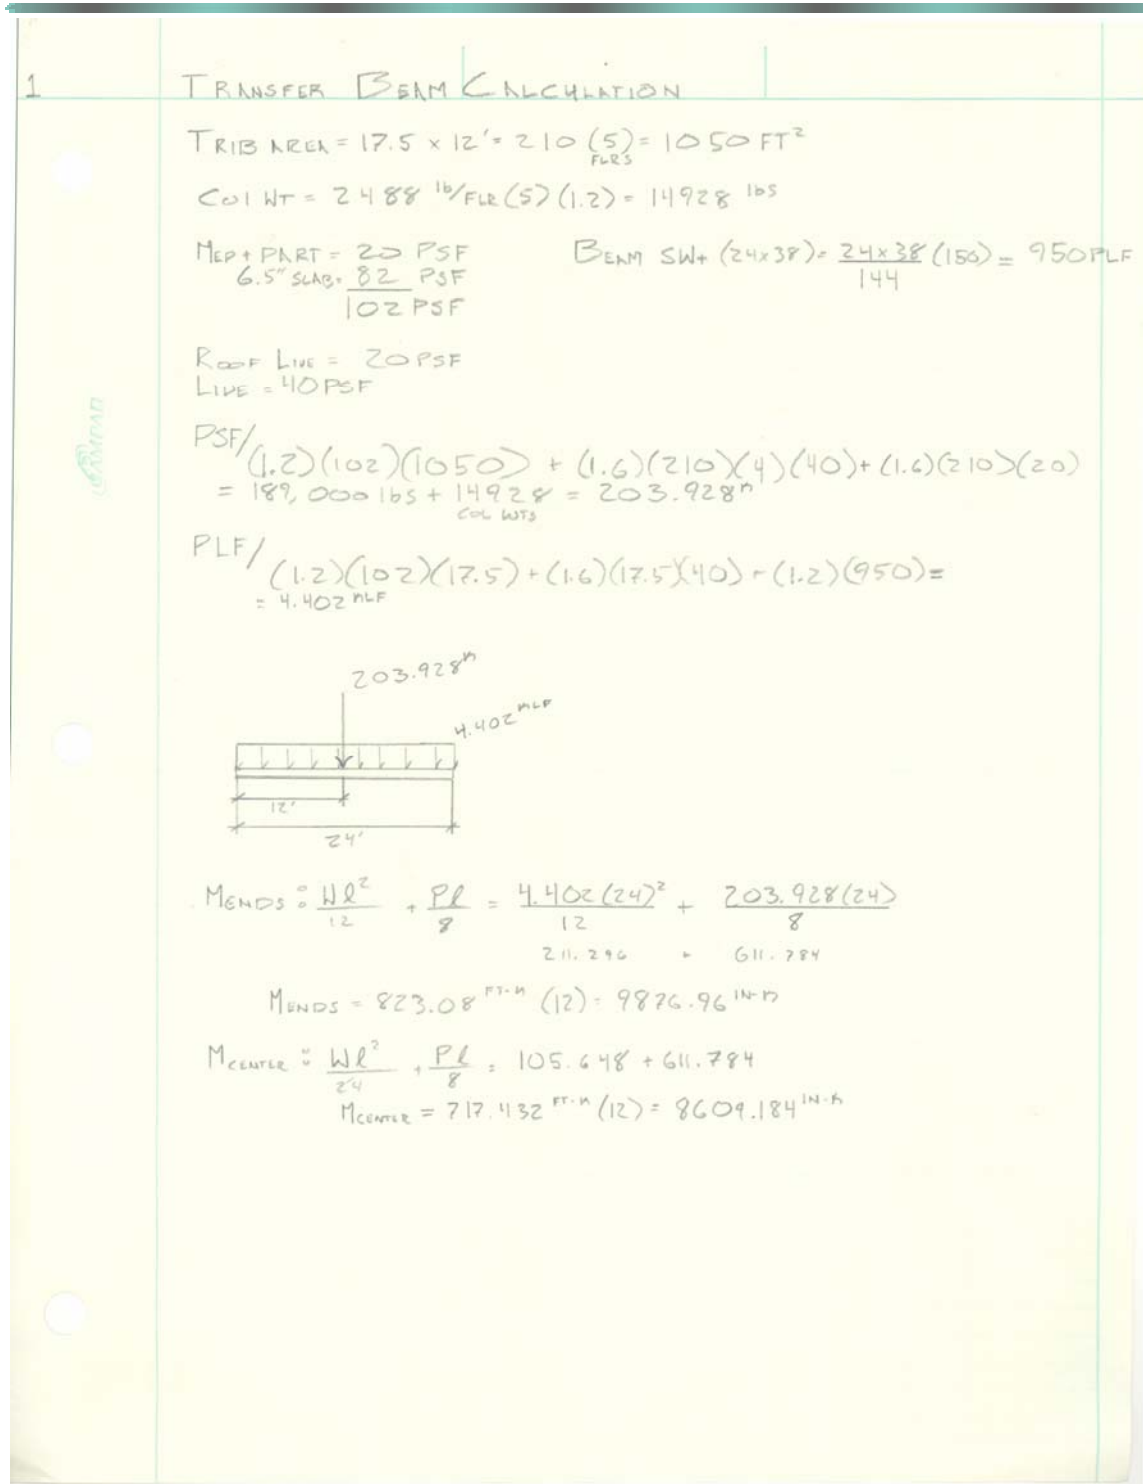 1
TRANSFER BEAM CALCULATION
TRIB AREA = 17.5 x 12' = 210 (5) = 1050 FT²
FLRS
COL WT = 2488 lb/FLR (5) (1.2) = 14928 lbs
MEP + PART = 20 PSF
6.5" SLAB = 82 PSF
102 PSF
BEAM SW+ (24x38) = 24x38 (150) = 950 PLF
144
ROOF LIVE = 20 PSF
LIVE = 40 PSF
PSF/ (1.2)(102)(1050) + (1.6)(210)(4)(40) + (1.6)(210)(20)
= 189,000 lbs + 14928 = 203.928ᵏ
COL WTS
PLF/ (1.2)(102)(17.5) + (1.6)(17.5)(40) + (1.2)(950) =
= 4.402 KLF
203.928ᵏ
4.402 KLF
12'
24'
MENDS : Wl² + Pl = 4.402(24)² + 203.928(24)
12 8 12 8
211.296 + 611.784
MENDS = 823.08 FT-K (12) = 9876.96 IN-K
MCENTER : Wl² + Pl = 105.648 + 611.784
24 8
MCENTER = 717.432 FT-K (12) = 8609.184 IN-K
AMPAD